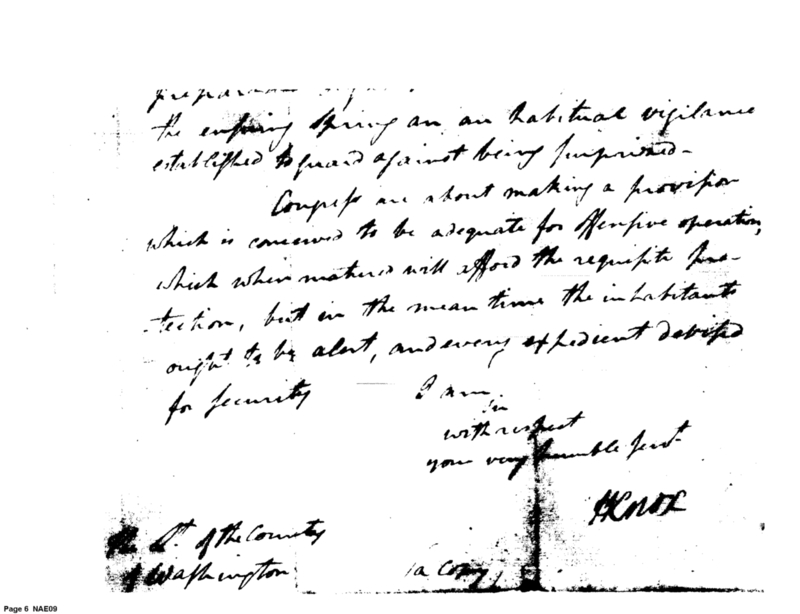 the ensuing Spring an an habitual vigilance
established to guard against being surprised-
Congress are about making a provision
which is conceived to be adequate for offensive operation,
which when matured will afford the requisite pro-
-tection, but in the mean time the inhabitants
ought to be alert, and every expedient devised
for security
I am
Sir
with respect
your very humble servt
HKnox
Lt. of the County
of Washington
(a Copy)
Page 6 NAE09